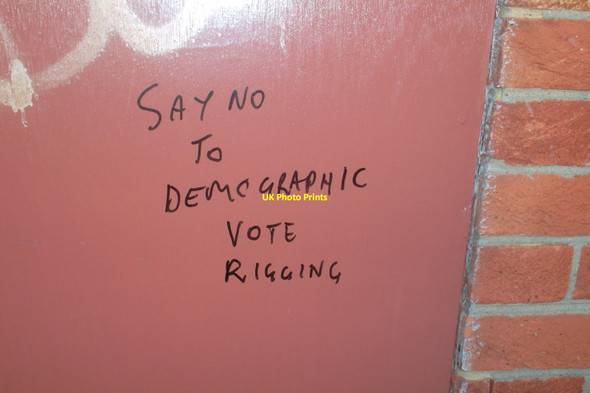 SAY NO
TO
DEMOGRAPHIC
UK Photo Prints
VOTE
RIGGING